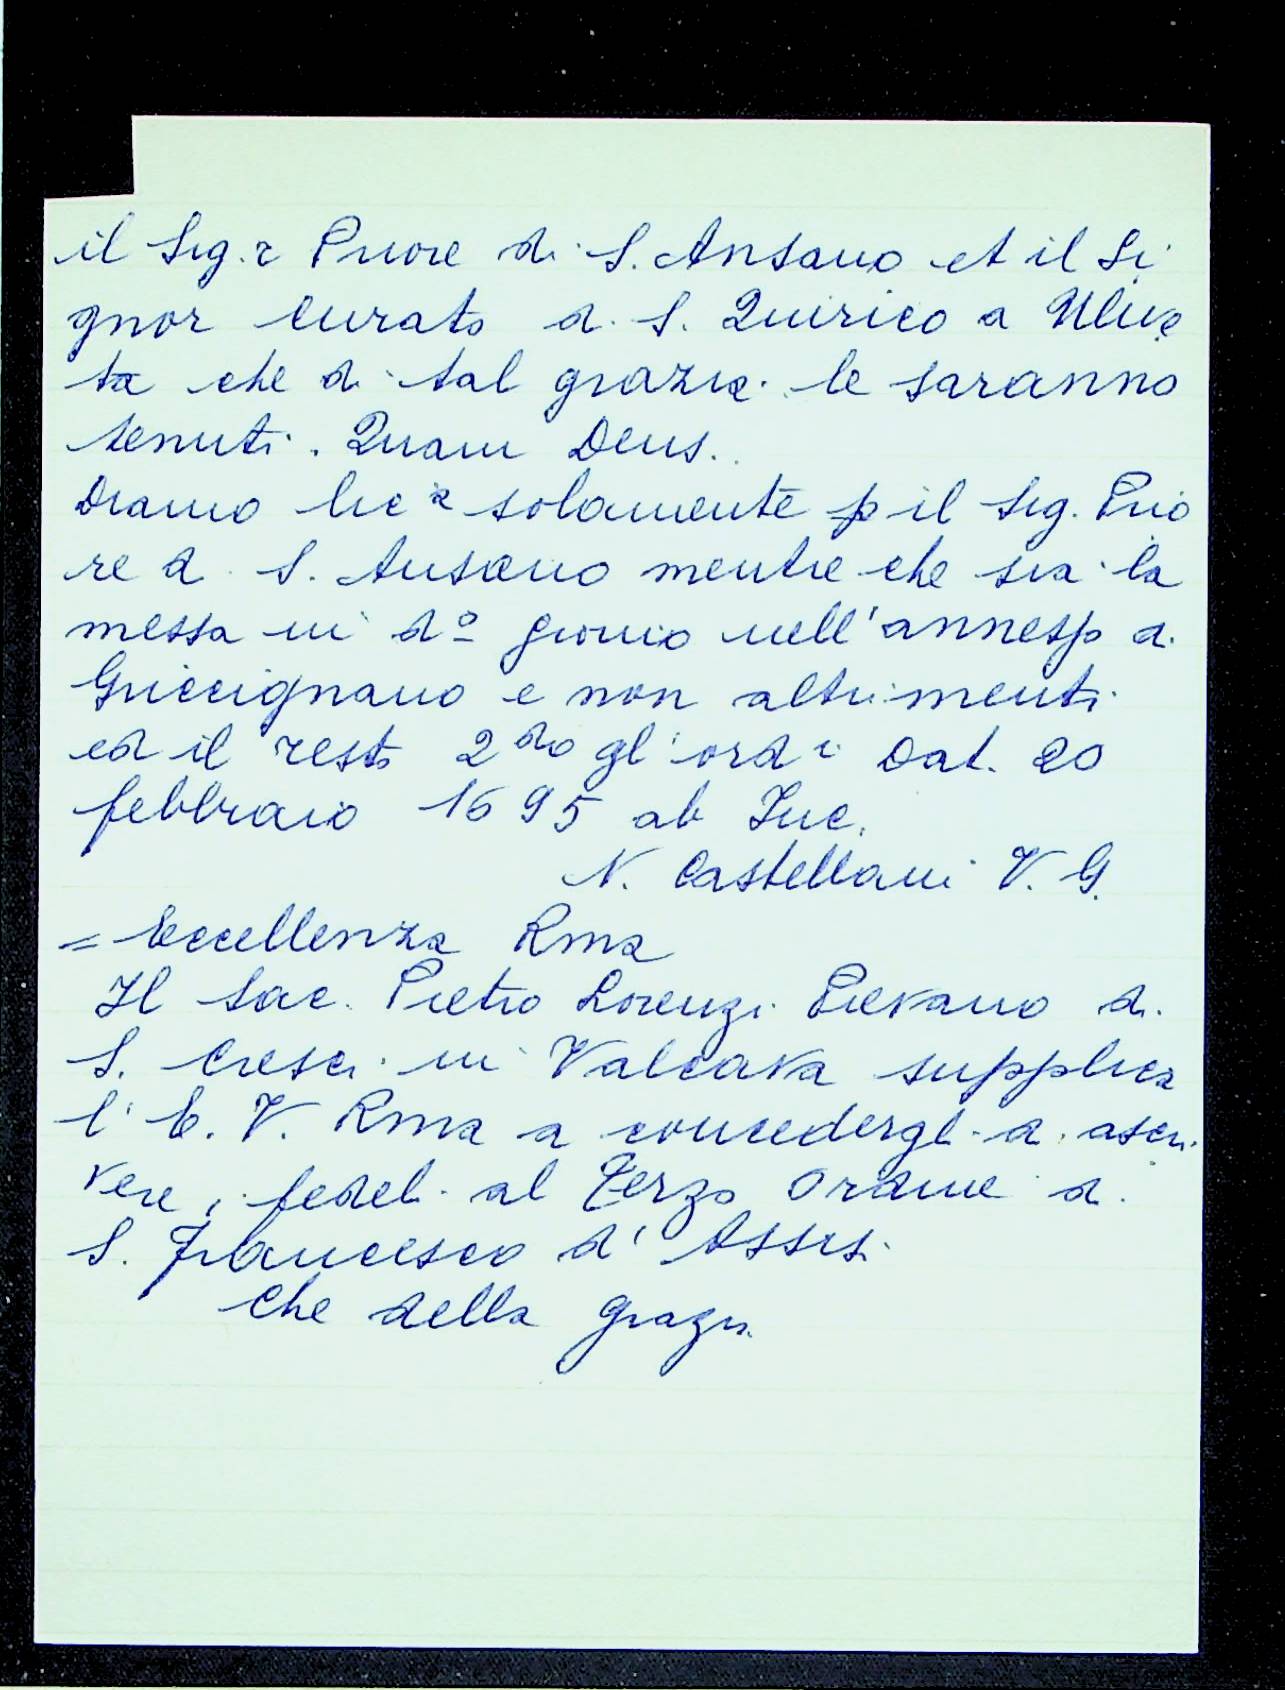 il Sig.r Priore di S. Ansano et il Si
gnor Curato di S. Quirico a Ulive
ta che di tal grazia le saranno
tenuti. Quam Deus.
Diamo lic.a solamente p il Sig. Prio
re di S. Ansano mentre che sia la
messa in do giorno nell'annesso di
Griccignano e non altrimenti
ed il resto 2do gl'ordi Dat. 20
febbraio 1695 ab Inc.
N. Castellani V. G.
= Eccellenza Rma
Il Sac. Pietro Lorenzi Pievano di
S. Cresci in Valcava supplica
l'E. V. Rma a concedergli di ascri
vere i fedeli al Terzo Ordine di
S. Francesco d'Assisi
Che della grazia